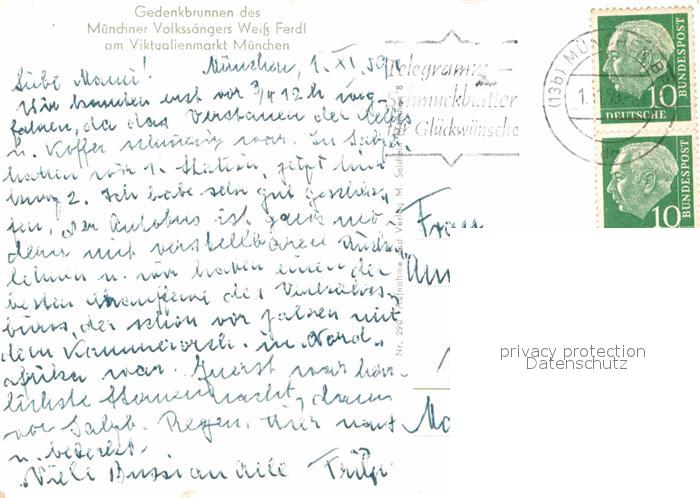 Gedenkbrunnen des
Münchner Volkssängers Weiß Ferdl
am Viktualienmarkt München
München, 1. XI. 59
Liebe Mami!
Wir konnten erst vor 3/4 12 h weg-
fahren, da das Verstauen der Cellos
u. Koffer schwierig war. In Salzb.
hatten wir 1. Station, jetzt
2. Ich habe sehr gut geschla-
fen, der Autobus ist ganz mo-
dern mit verstellbaren Rücken-
lehnen u. wir haben einen der
besten Chauffeure des Verkehrs-
büros, der schon vor Jahren mit
dem Kammerorch. in Nord-
afrika war. Zuerst war herr-
lichste Sternennacht, dann
vor Salzb. Regen, hier
u. bedeckt.
Viele Bussi an alle
Telegramm -
Schmuckblätter
für Glückwünsche
(13b) MÜNCHEN
10
DEUTSCHE
BUNDESPOST
10
BUNDESPOST
Nr. 290 Aufnahme und Verlag M. Seidlein
Frau
privacy protection
Datenschutz